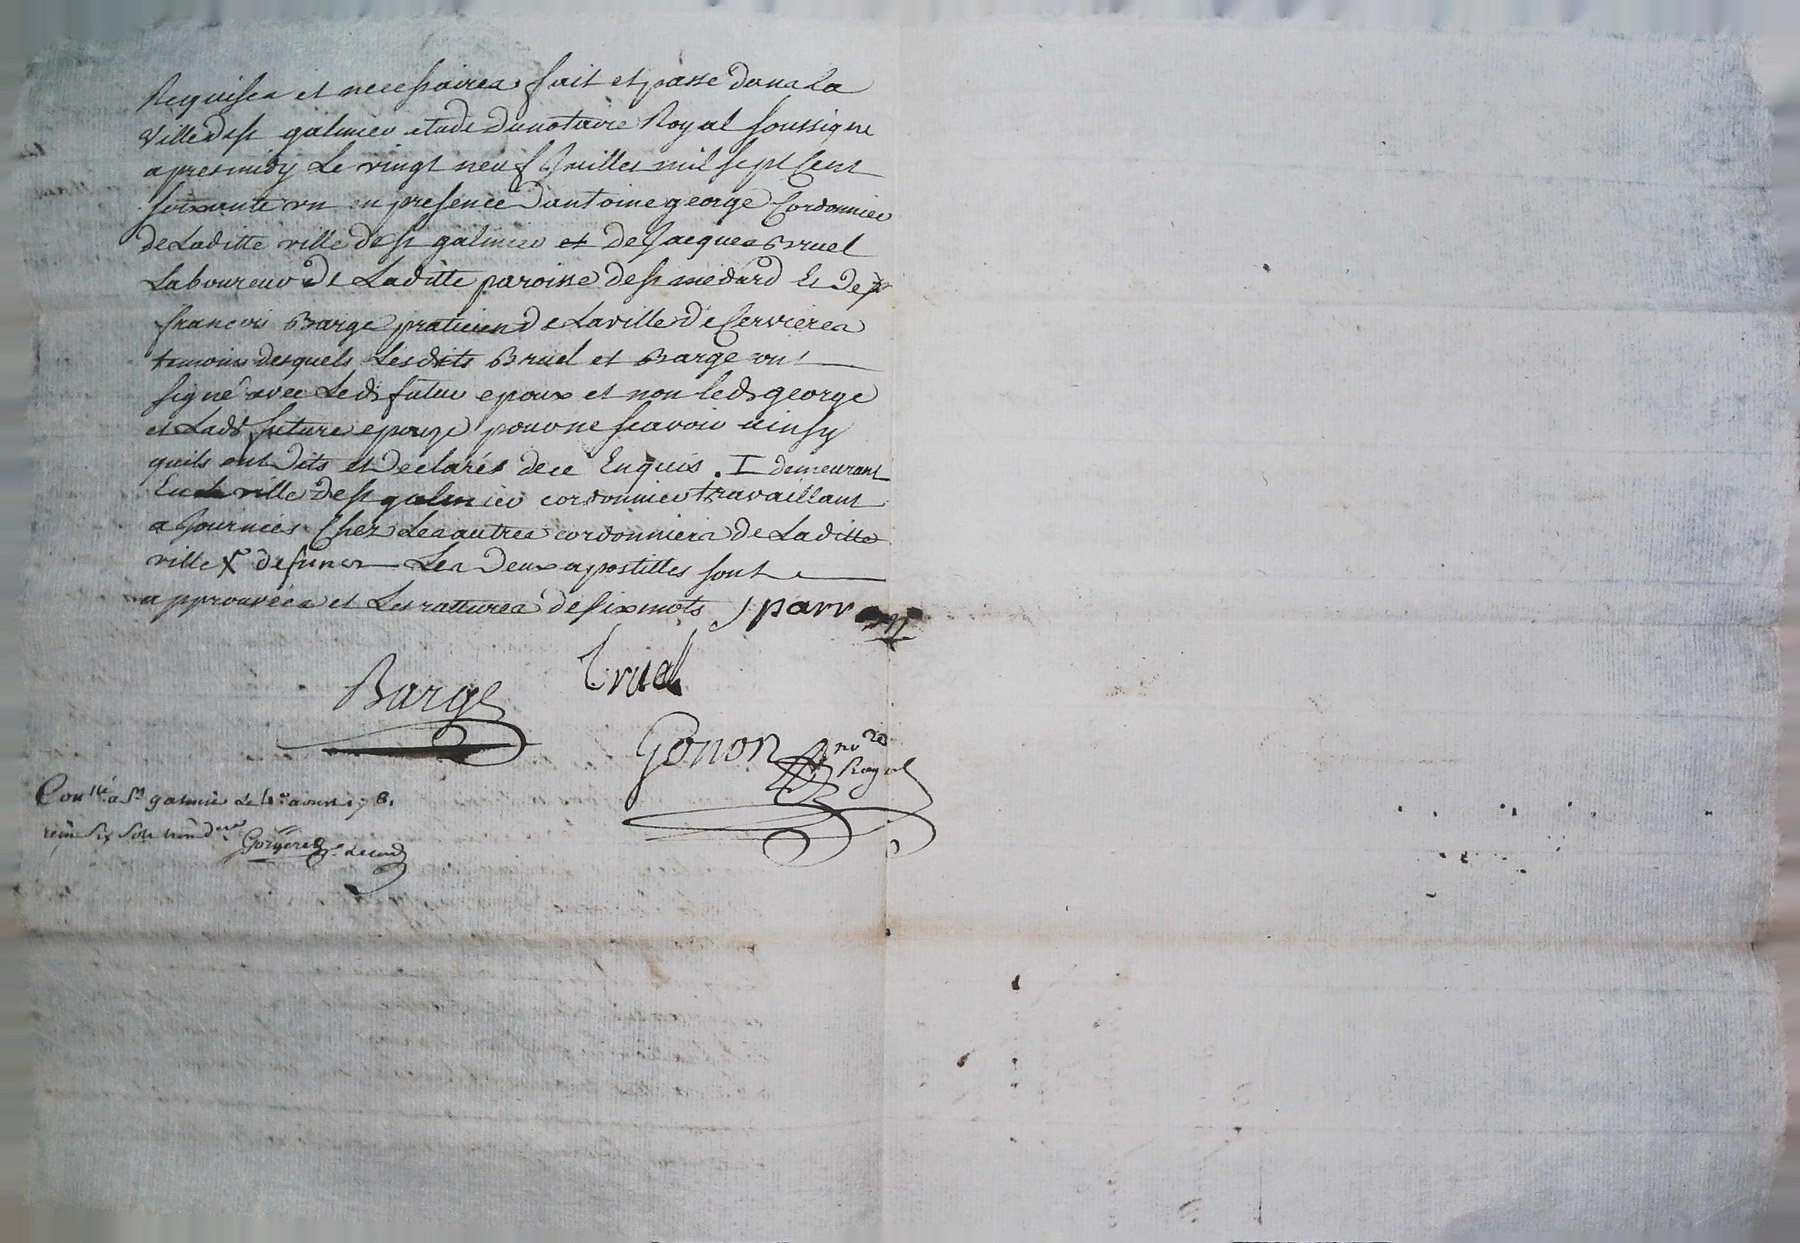 Requises et necessaires fait et passé dans la
ville de st galmier etude du notaire Royal soussigne
apres midy Le vingt neuf Juillet mil sept cent
soixante un en presence d'antoine george Cordonnier
de Laditte ville de st galmier et de Jacques Bruel
Laboureur de Laditte paroisse de st medard Et de
françois Barge praticien de La ville de Cervieres
temoins desquels Lesdits Bruel et Barge ont
signé avec Led. futur epoux et non led. george
et Lade future epouze pour ne scavoir ainsy
quils ont dits et declarés de ce Enquis. I demeurant
En la ville de st galmier cordonnier travaillant
a Journées Chez Les autres cordonniers de Laditte
ville X defunct Les deux apostilles sont
approuvées et Les rattures de six mots J parr
Bruel
Barge
Gonon nore
Royal
Con.llé a St galmier Le 1er aoust 1761